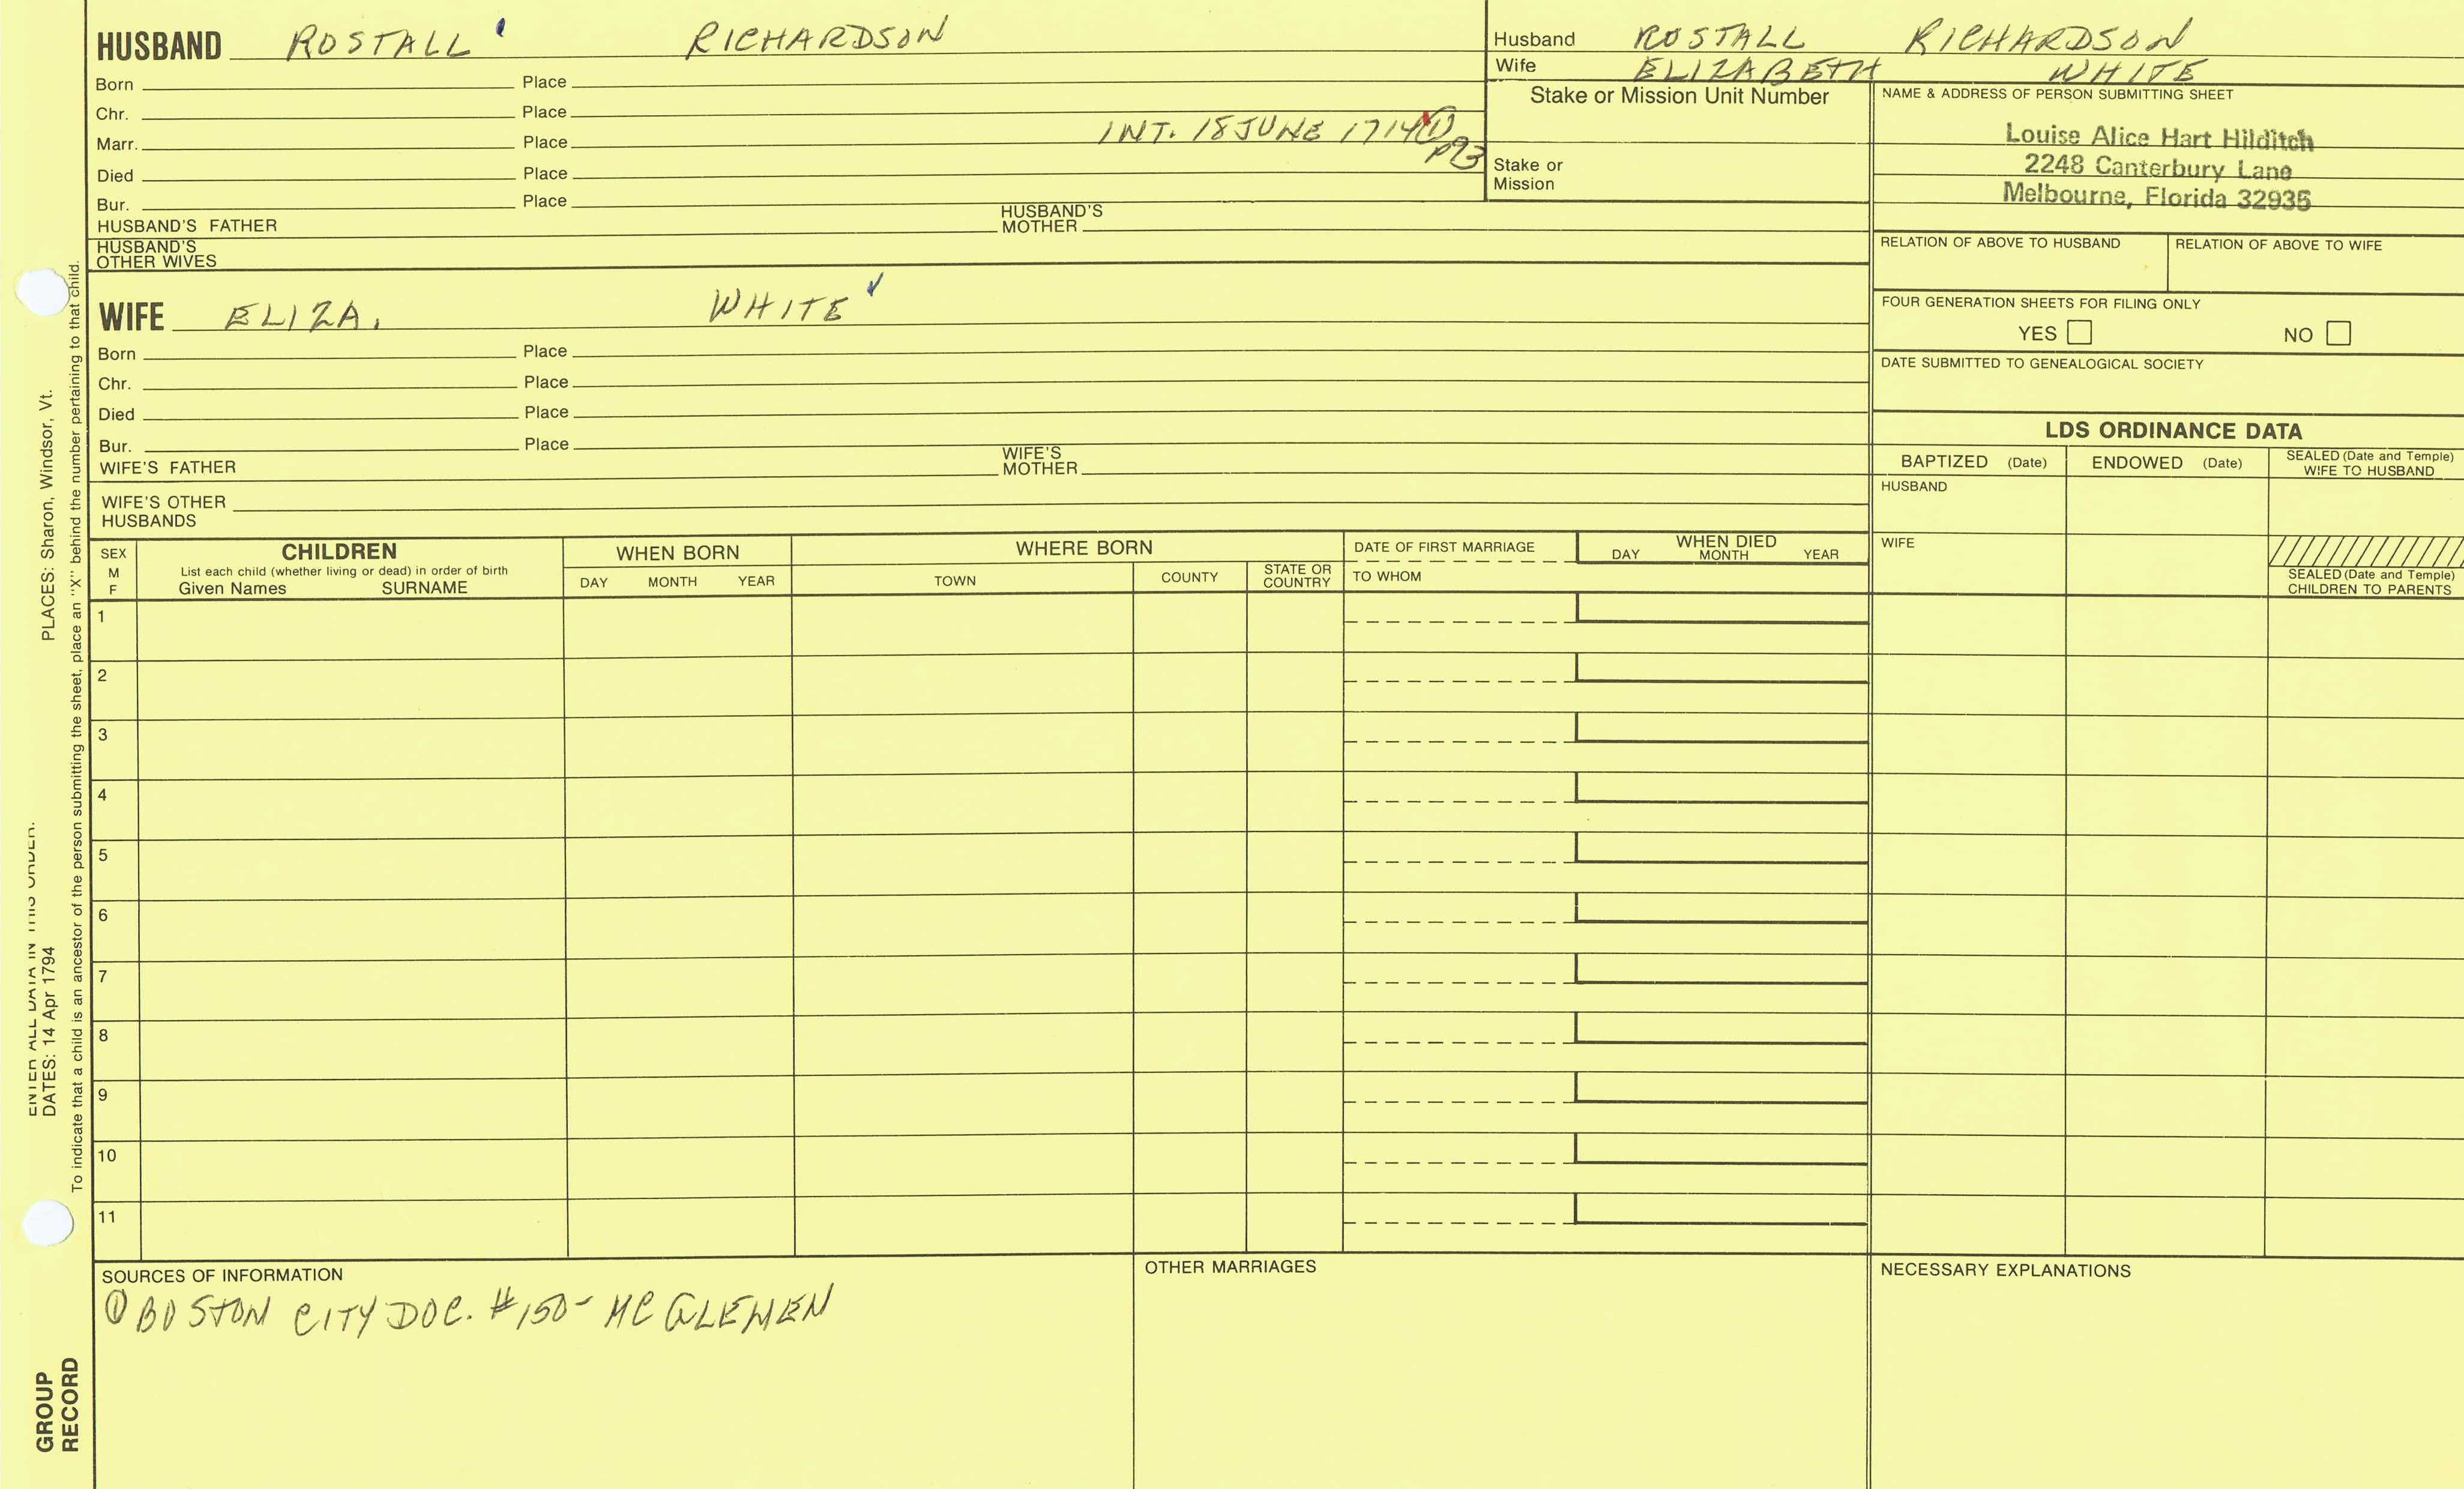 HUSBAND ROSTALL RICHARDSON
Born Place
Chr. Place
Marr. Place INT. 18 JUNE 1714 (1) p93
Died Place
Bur. Place
HUSBAND'S FATHER HUSBAND'S MOTHER
HUSBAND'S OTHER WIVES
WIFE ELIZA. WHITE
Born Place
Chr. Place
Died Place
Bur. Place
WIFE'S FATHER WIFE'S MOTHER
WIFE'S OTHER HUSBANDS
Husband ROSTALL RICHARDSON
Wife ELIZABETH WHITE
Stake or Mission Unit Number
Stake or Mission
NAME & ADDRESS OF PERSON SUBMITTING SHEET
Louise Alice Hart Hilditch
2248 Canterbury Lane
Melbourne, Florida 32935
RELATION OF ABOVE TO HUSBAND RELATION OF ABOVE TO WIFE
FOUR GENERATION SHEETS FOR FILING ONLY
YES NO
DATE SUBMITTED TO GENEALOGICAL SOCIETY
LDS ORDINANCE DATA
BAPTIZED (Date) ENDOWED (Date) SEALED (Date and Temple) WIFE TO HUSBAND
HUSBAND
WIFE
SEALED (Date and Temple) CHILDREN TO PARENTS
SEX M F
CHILDREN
List each child (whether living or dead) in order of birth
Given Names SURNAME
WHEN BORN
DAY MONTH YEAR
WHERE BORN
TOWN COUNTY STATE OR COUNTRY
DATE OF FIRST MARRIAGE
TO WHOM
WHEN DIED
DAY MONTH YEAR
1
2
3
4
5
6
7
8
9
10
11
SOURCES OF INFORMATION
① BOSTON CITY DOC. #150- MC GLENEN
OTHER MARRIAGES
NECESSARY EXPLANATIONS
ENTER ALL DATA IN THIS ORDER:
DATES: 14 Apr 1794 PLACES: Sharon, Windsor, Vt.
To indicate that a child is an ancestor of the person submitting the sheet, place an "X" behind the number pertaining to that child.
GROUP
RECORD